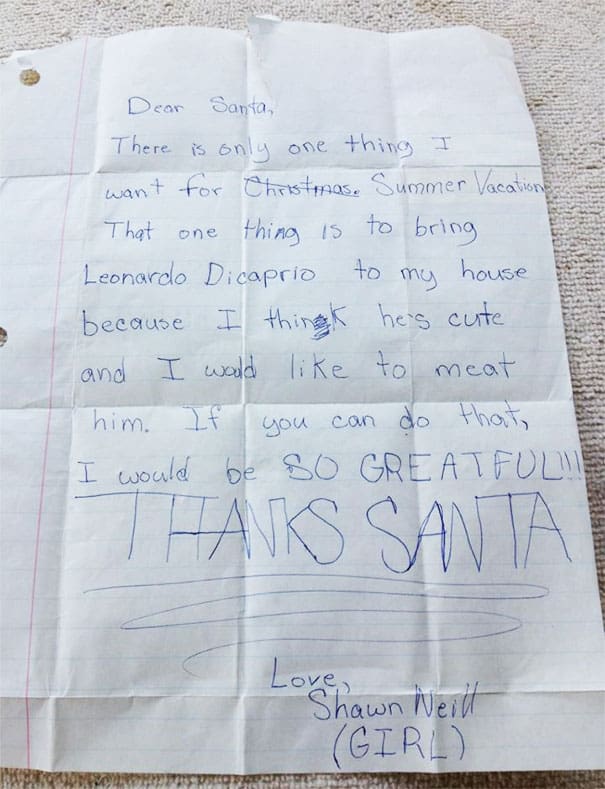 Dear Santa,
There is only one thing I
want for Christmas. Summer Vacation
That one thing is to bring
Leonardo Dicaprio to my house
because I think he's cute
and I would like to meat
him. If you can do that,
I would be SO GREATFUL!!!
THANKS SANTA
Love,
Shawn Neill
(GIRL)